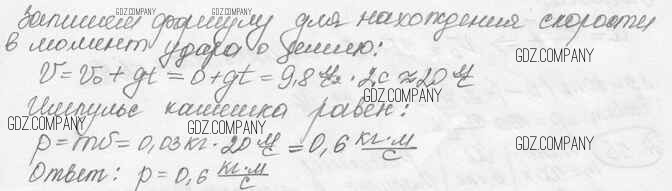 Запишем формулу для нахождения скорости
в момент удара о землю:
V = V₀ + gt = 0 + gt = 9,8 м/с² · 2с ≈ 20 м/с
Импульс камешка равен:
p = mυ = 0,03 кг · 20 м/с = 0,6 кг·м/с
Ответ: p = 0,6 кг·м/с
GDZ.COMPANY
GDZ.COMPANY
GDZ.COMPANY
GDZ.COMPANY
GDZ.COMPANY
GDZ.COMPANY
GDZ.COMPANY
GDZ.COMPANY